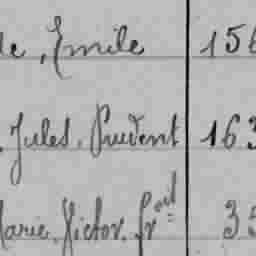 de, Emile 156
, Jules, Prudent 163
Marie, Victor, frçois 35